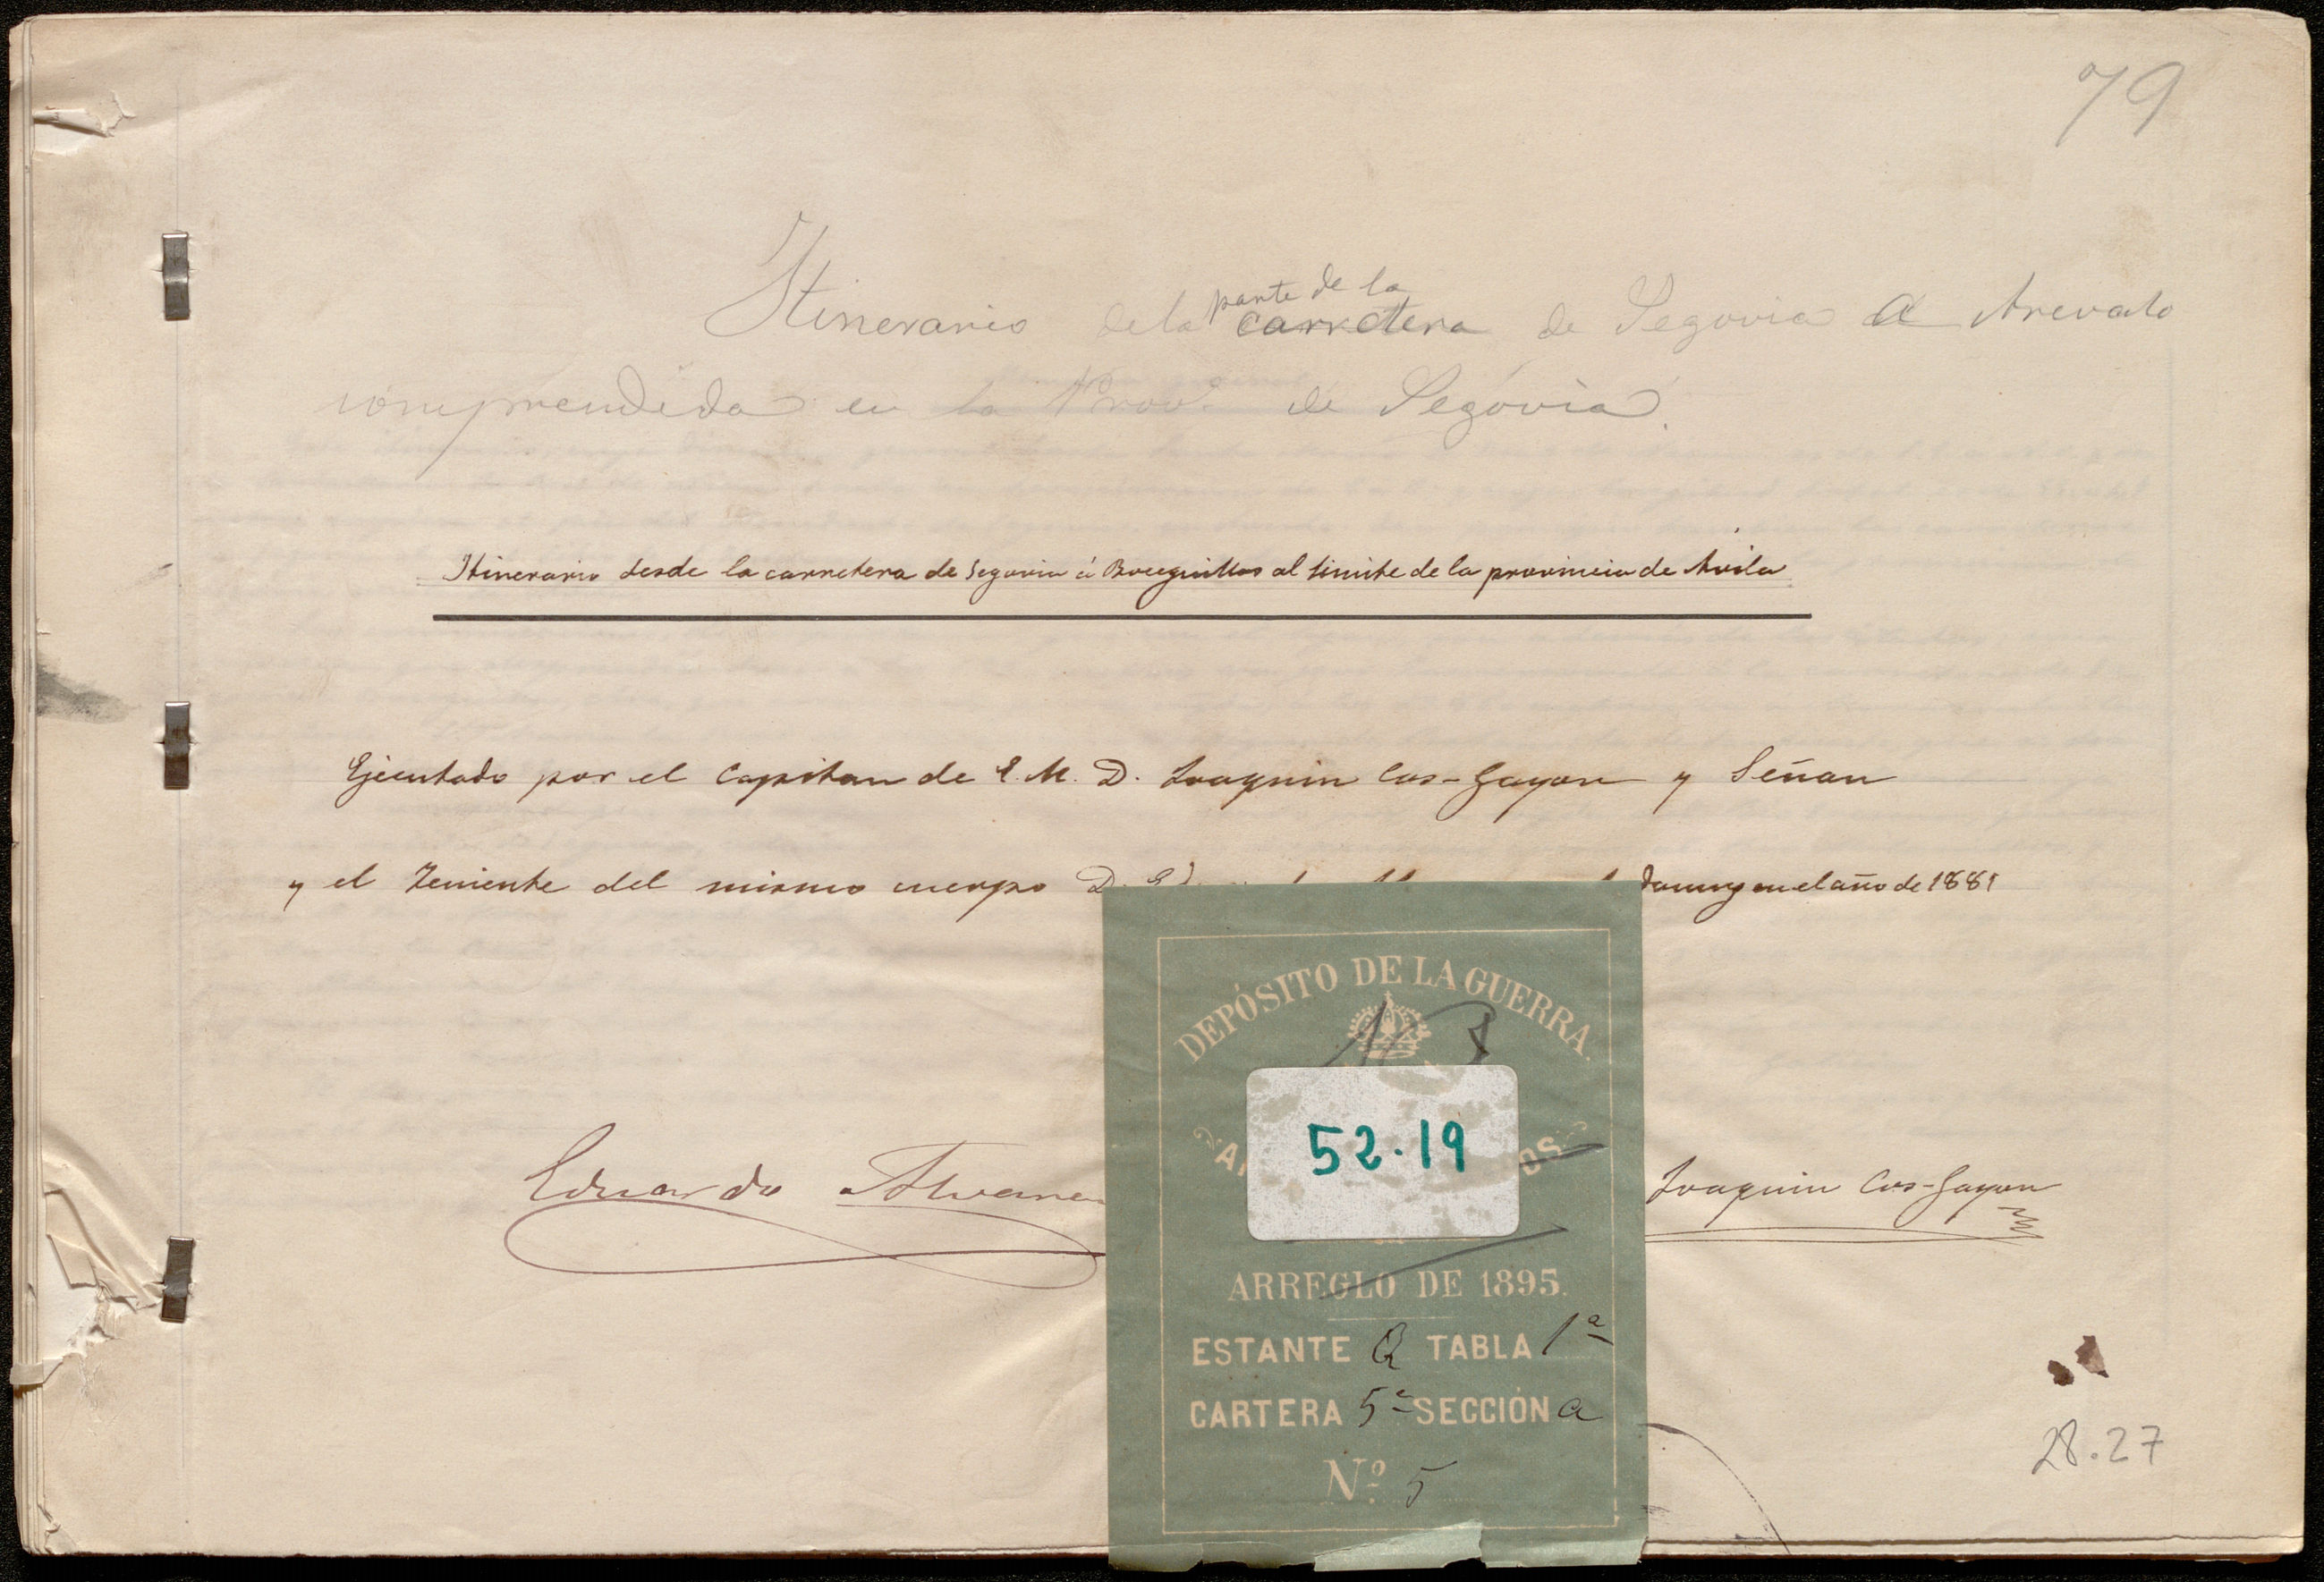 79
Itinerario de la parte de la carretera de Segovia a Arevalo
comprendida en la Prov.ª de Segovia.
Itinerario desde la carretera de Segovia á Boceguillas al limite de la provincia de Avila
Ejecutado por el Capitan de E. M. D. Joaquin Cos-Gayon y Señan
y el Teniente del mismo cuerpo D. en el año de 1881
DEPÓSITO DE LA GUERRA.
52.19
Eduardo Alvarez
Joaquin Cos-Gayon
ARREGLO DE 1895.
ESTANTE Q TABLA 1ª
CARTERA 5ª SECCIÓN a
Nº 5
28.27